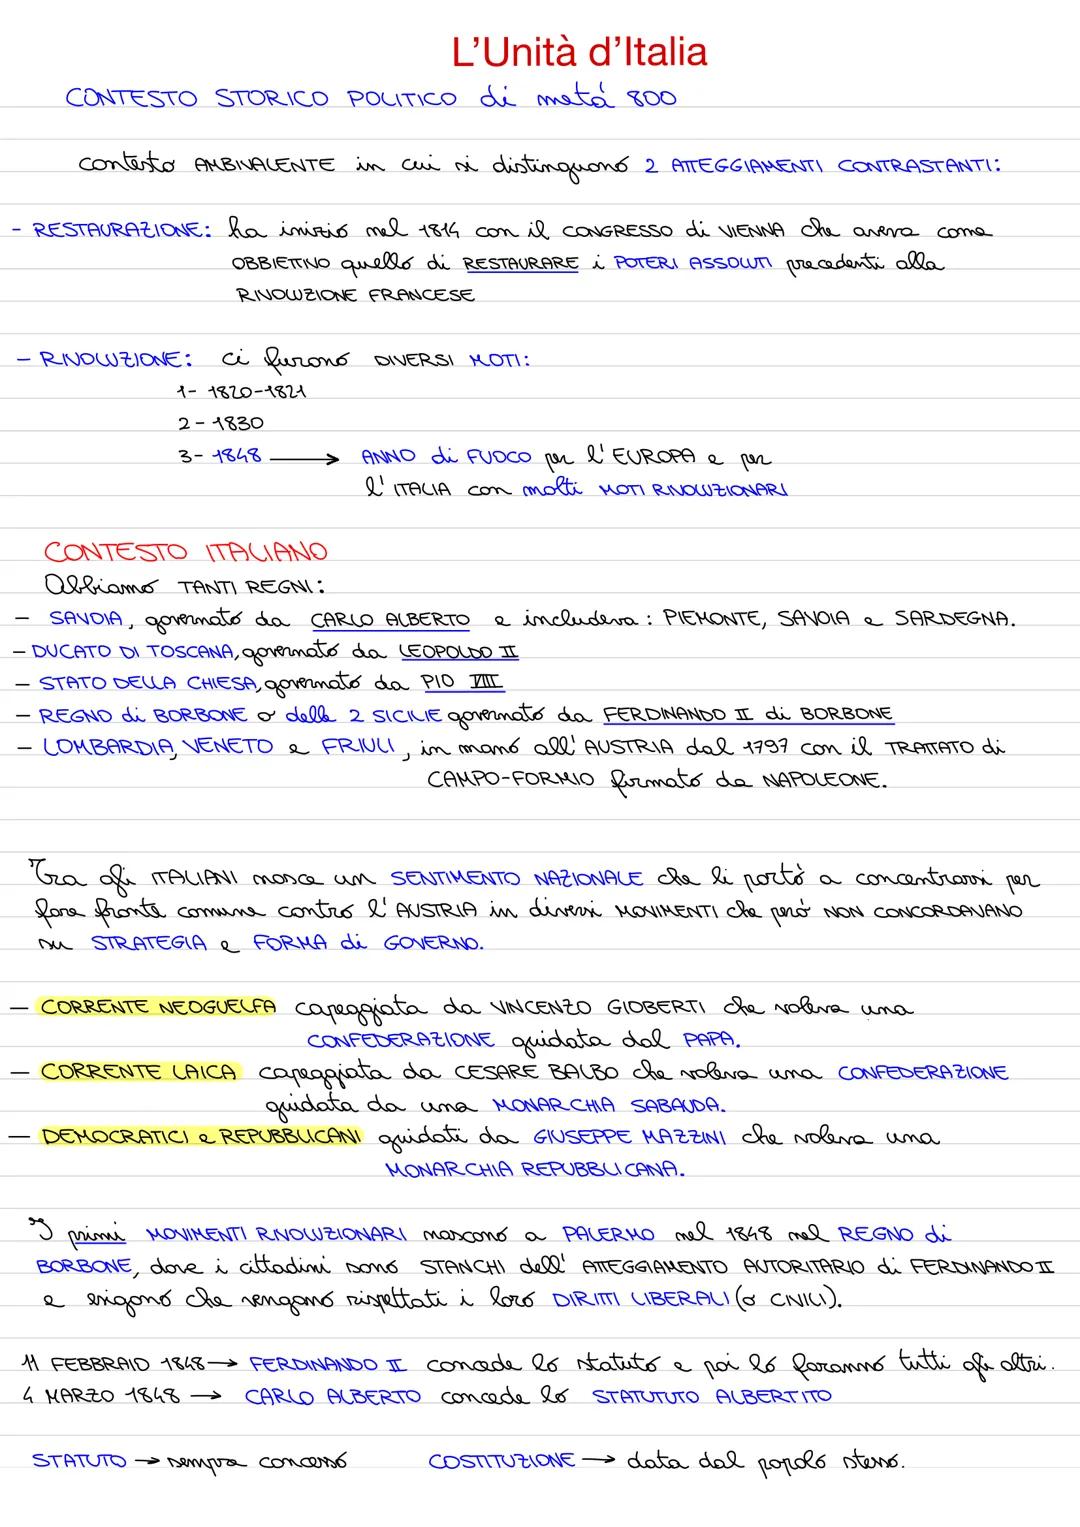 L'Unità d'Italia
CONTESTO STORICO POLITICO di metá 800
contesto AMBIVALENTE in cui si distinguono 2 ATTEGGIAMENTI CONTRASTANTI:
- RESTAURAZIONE: ha inizio nel 1814 con il CONGRESSO di VIENNA che aveva come
OBBIETTINO quello di RESTAURARE i POTERI ASSOLUTI precedenti alla
RIVOLUZIONE FRANCESE
- RIVOLUZIONE: ci furono DIVERSI MOTI:
1- 1820-1821
2- 1830
3- 1848 → ANNO di FUOCO per l'EUROPA e per
l'ITALIA con molti MOTI RIVOLUZIONARI
CONTESTO ITALIANO
Abbiamo TANTI REGNI:
- SAVOIA, governato da CARLO ALBERTO e includeva: PIEMONTE, SAVOIA e SARDEGNA.
- DUCATO DI TOSCANA, governato da LEOPOLDO II
- STATO DELLA CHIESA, governato da PIO VIII
- REGNO di BORBONE o delle 2 SICILIE governato da FERDINANDO II di BORBONE
- LOMBARDIA, VENETO e FRIULI, in mano all'AUSTRIA dal 1797 con il TRATTATO di
CAMPO-FORMIO firmato da NAPOLEONE.
Tra gli ITALIANI nasce un SENTIMENTO NAZIONALE che li portò a concentrarsi per
fare fronte comune contro l'AUSTRIA in diversi MOVIMENTI che peró NON CONCORDAVANO
su STRATEGIA e FORMA di GOVERNO.
- CORRENTE NEOGUELFA capeggiata da VINCENZO GIOBERTI che voleva una
CONFEDERAZIONE guidata dal PAPA.
- CORRENTE LAICA capeggiata da CESARE BALBO che voleva una CONFEDERAZIONE
guidata da una MONARCHIA SABAUDA.
- DEMOCRATICI e REPUBBLICANI guidati da GIUSEPPE MAZZINI che voleva una
MONARCHIA REPUBBLICANA.
I primi MOVIMENTI RIVOLUZIONARI nascono a PALERMO nel 1848 nel REGNO di
BORBONE, dove i cittadini sono STANCHI dell'ATTEGGIAMENTO AUTORITARIO di FERDINANDO II
e erigono che vengano rispettati i loro DIRITTI LIBERALI (o CIVILI).
11 FEBBRAIO 1848 → FERDINANDO II concede lo statuto e poi lo faranno tutti gli altri.
4 MARZO 1848 → CARLO ALBERTO concede lo STATUTUTO ALBERTITO
STATUTO → sempre concesso COSTITUZIONE → data dal popolo stesso.